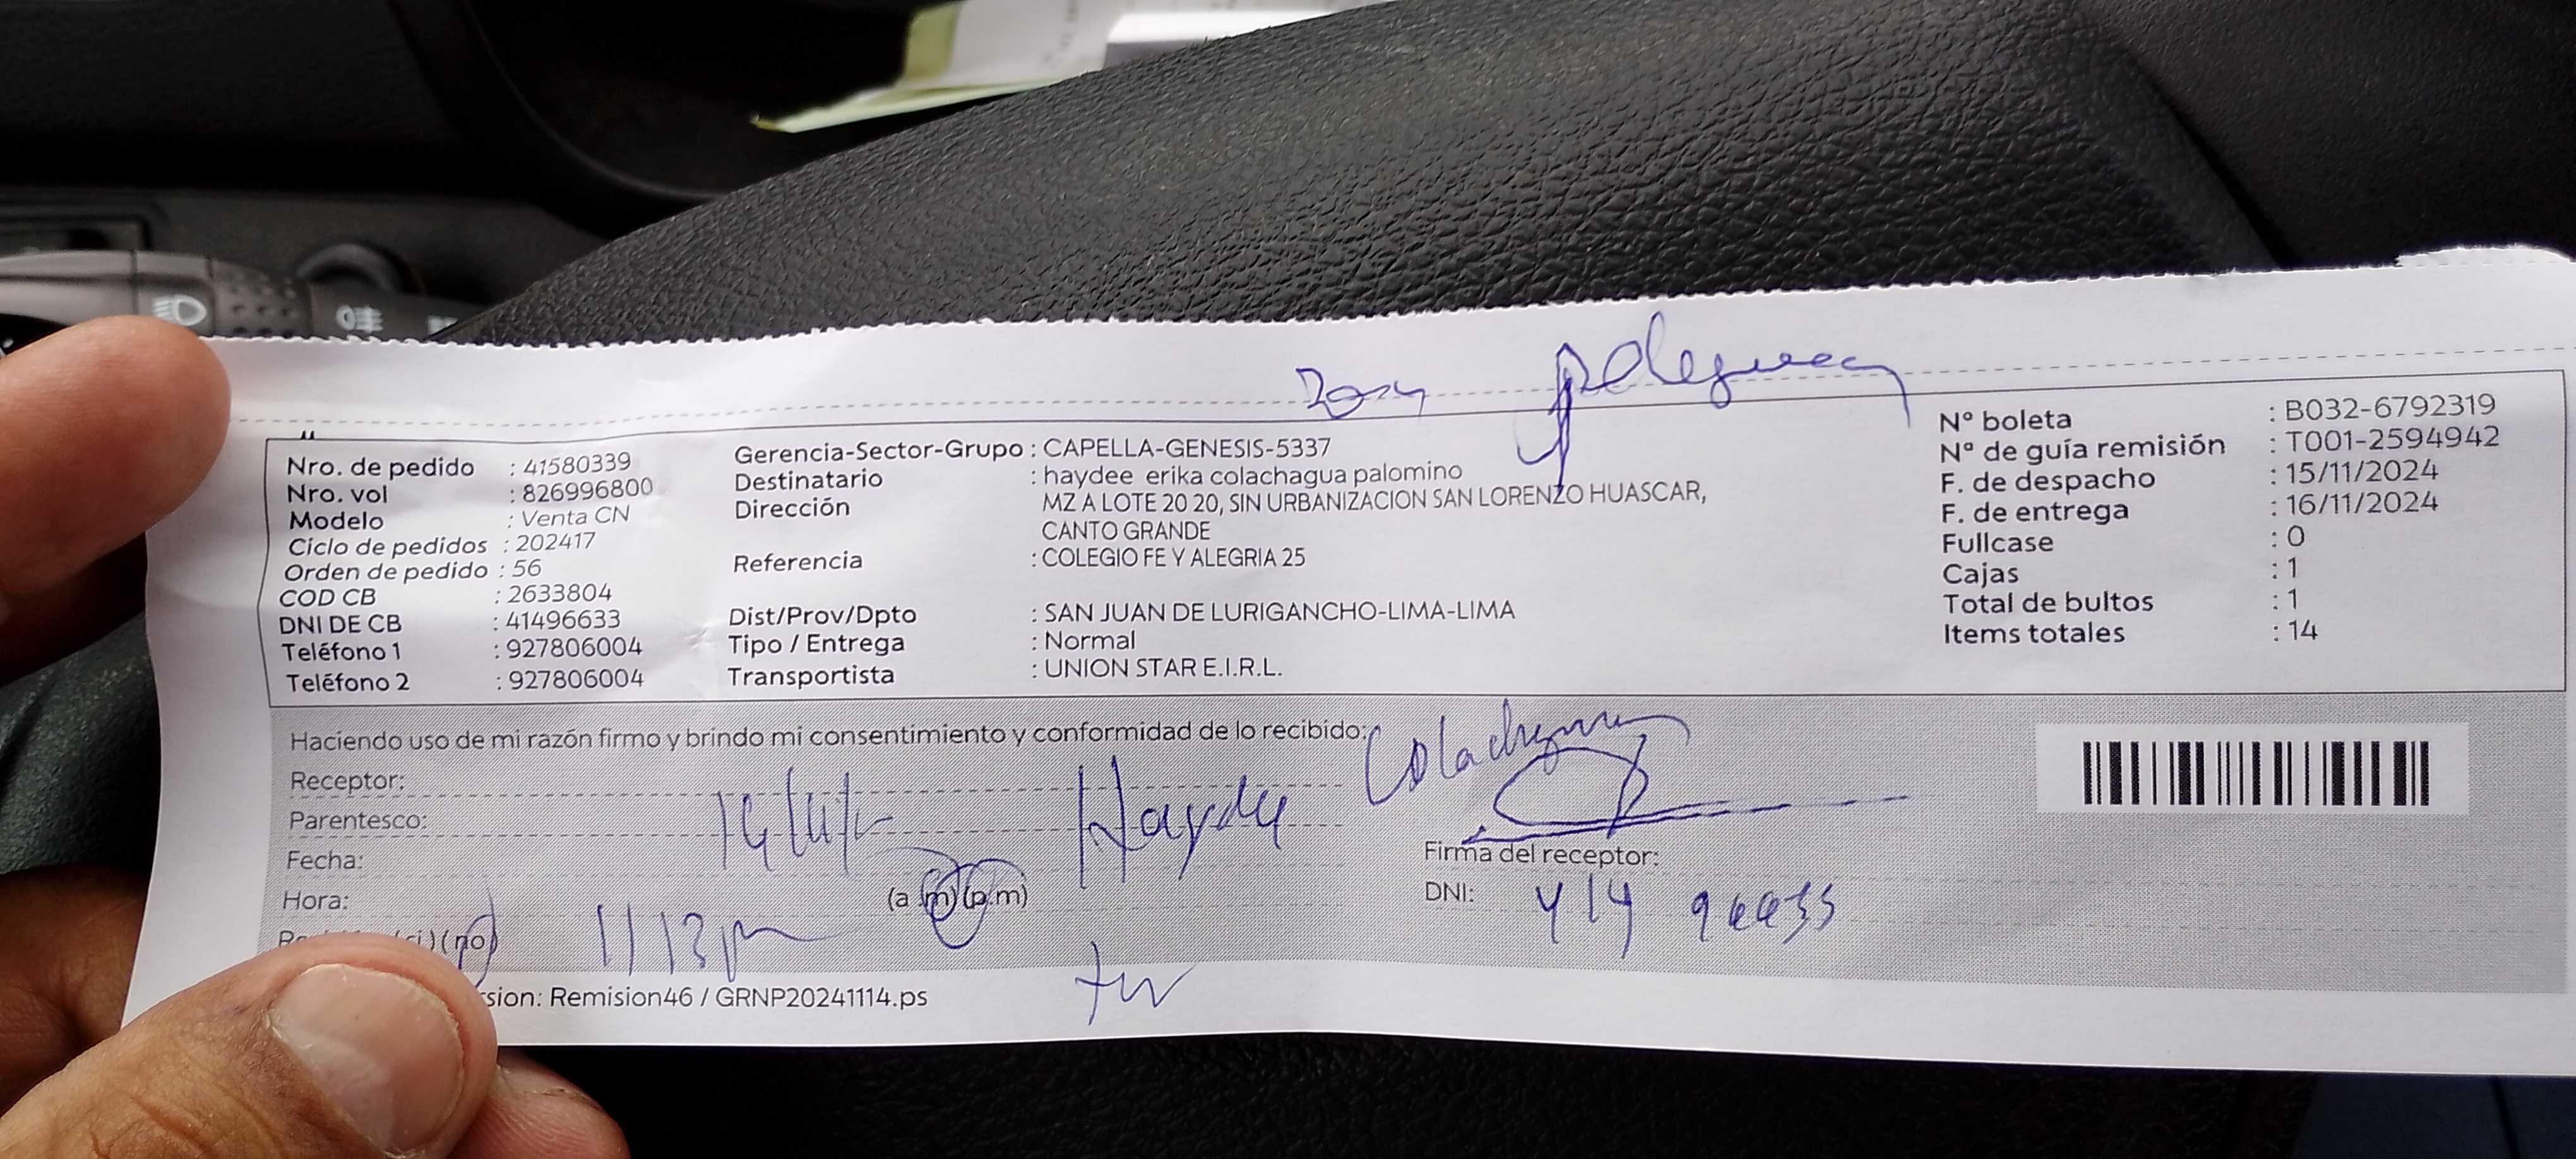 Nro. de pedido : 41580339
Nro. vol : 826996800
Modelo : Venta CN
Ciclo de pedidos : 202417
Orden de pedido : 56
COD CB : 2633804
DNI DE CB : 41496633
Teléfono 1 : 927806004
Teléfono 2 : 927806004
Gerencia-Sector-Grupo : CAPELLA-GENESIS-5337
Destinatario : haydee erika colachagua palomino
Dirección : MZ A LOTE 20 20, SIN URBANIZACION SAN LORENZO HUASCAR,
CANTO GRANDE
Referencia : COLEGIO FE Y ALEGRIA 25
Dist/Prov/Dpto : SAN JUAN DE LURIGANCHO-LIMA-LIMA
Tipo / Entrega : Normal
Transportista : UNION STAR E.I.R.L.
Nº boleta : B032-6792319
Nº de guía remisión : T001-2594942
F. de despacho : 15/11/2024
F. de entrega : 16/11/2024
Fullcase : 0
Cajas : 1
Total de bultos : 1
Items totales : 14
Haciendo uso de mi razón firmo y brindo mi consentimiento y conformidad de lo recibido:
Receptor:
Parentesco:
Fecha:
Hora: (a.m) (p.m)
(si) (no)
Haydee
Firma del receptor:
DNI:
sion: Remision46 / GRNP20241114.ps